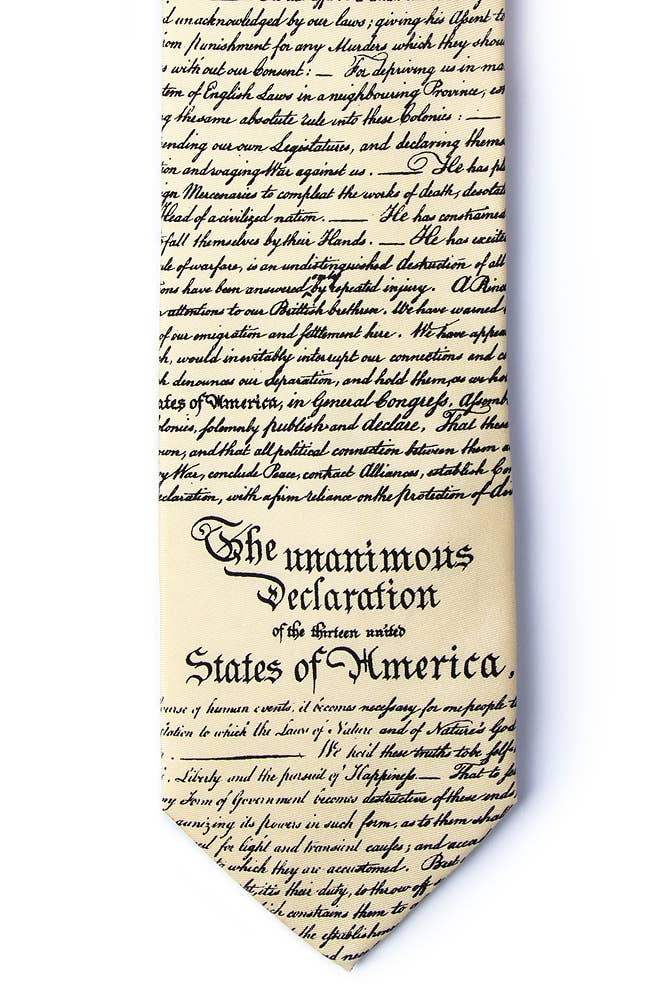 unacknowledged by our laws; giving his Assent to
from punishment for any Murders which they shou
s without our Consent: — For depriving us in ma
tem of English Laws in a neighbouring Province, es
g the same absolute rule into these Colonies: —
ending our own Legislatures, and declaring thems
ion and waging War against us. — He has pl
ign Mercenaries to compleat the works of death, desolat
Head of a civilized nation. — He has constrained
fall themselves by their Hands. — He has excite
ule of warfare, is an undistinguished destruction of all
ons have been answered only by repeated injury. A Prin
n attentions to our Brittish brethren. We have warned
of our emigration and settlement here. We have appea
h, would inevitably interrupt our connections and c
h denounces our Separation, and hold them, as we ho
ates of America, in General Congress, Assemb
olonies, solemnly publish and declare, That thes
own, and that all political connection between them a
vy War, conclude Peace, contract Alliances, establish Co
claration, with a firm reliance on the Protection of di
The unanimous
Declaration
of the thirteen united
States of America,
ourse of human events, it becomes necessary for one people t
tation to which the Laws of Nature and of Nature's God
We hold these truths to be self
, Liberty and the pursuit of Happiness. — That to se
ny Form of Government becomes destructive of these ends,
ganizing its powers in such form, as to them shal
ed for light and transient causes; and acco
to which they are accustomed. But
ht, it is their duty, to throw off
hich constrains them to a
the establishm
nd ne